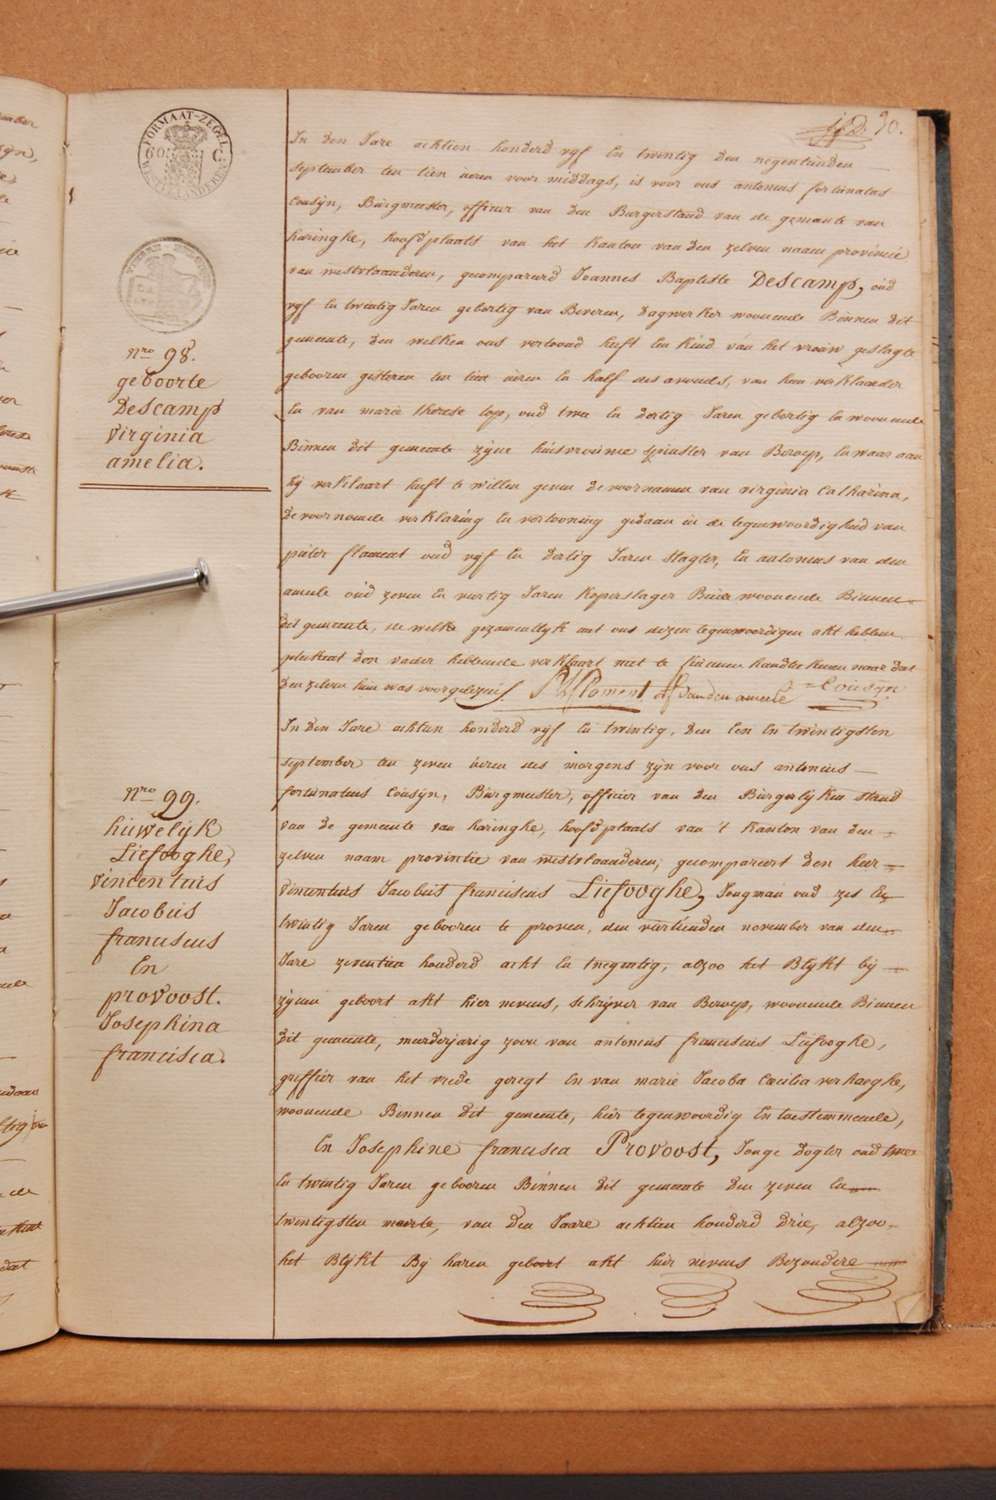 30.
FORMAAT-ZEGEL
60 C
Nro 98.
geboorte
Descamp
virginia
amelia.
In den Jare achtien honderd vyf En twintig den negentienden
september ten tien uren voor middags, is voor ons antonius fortunatus
Cousÿn, Burgmeester, officier van den Burgerstand van de gemeente van
haringhe, hoofdplaats van het kanton van den zelven naam provincie
van westvlaanderen, gecompareerd Joannes Baptiste Descamp, oud
vyf En twintig Jaren gebortig van Beveren, Dagwerker woonende Binnen dit
gemeente, den welken ons vertoond heeft Een kind van het vrouw geslagte
gebooren gisteren ten uren En half des avonds, van hem verklaarder
En van marie therese lope, oud twee En dertig Jaren gebortig En woonende
Binnen dit gemeente zÿne huisvrouwe spinster van Beroep, En waar aan
hÿ verklaart heeft te willen geven de voornamen van virginia Catharina,
de voornoemde verklaring En vertooning gedaan in de tegenwoordigheid van
pieter flament oud vyf En dertig Jaren slagter, En antonius van den
ameele oud zeven En veertig Jaren koperslager Beide woonende Binnen
dit gemeente, de welke gezamentlyk met ons dezen tegenwoordigen akt hebben
geteekent den vader hebbende verklaart niet te kunnen naar dat
den zelven hun was voorgelezen. P Flament vanden ameele Cousÿn
Nro 99.
huwelÿk
Liefooghe,
vincentius
Jacobus
franciscus
En
provoost.
Josephina
francisca.
In den Jare achtien honderd vÿf En twintig, den Een En twintigsten
september ten zeven uren des morgens zÿn voor ons antonius
fortunatus Cousÿn, Burgmeester, officier van den Burgerlÿken stand
van de gemeente van haringhe, hoofdplaats van 't kanton van den
zelven naam provintie van westvlaanderen, gecompareert den heer
vincentius Jacobus franciscus Liefooghe, Jongman oud zes En
twintig Jaren gebooren te proven, den veertienden november van den
Jare zeventien honderd acht En tnegentig, alzoo het Blÿkt bÿ
zÿnen geboort akt hier nevens, schrÿver van Beroep, woonende Binnen
dit gemeente, meerderjarig zoon van antonius franciscus Liefooghe,
greffier van het vrede geregt En van marie Jacoba Cœcilia verhaeghe,
woonende Binnen dit gemeente, hier tegenwoordig En toestemmende,
En Josephine francisca Provoost, Jonge Dogter oud twee
En twintig Jaren gebooren Binnen dit gemeente den zeven En
twintigsten meerte, van den Jaare achtien honderd drie, alzoo
het Blÿkt Bÿ haren geboort akt hier nevens Bezondere